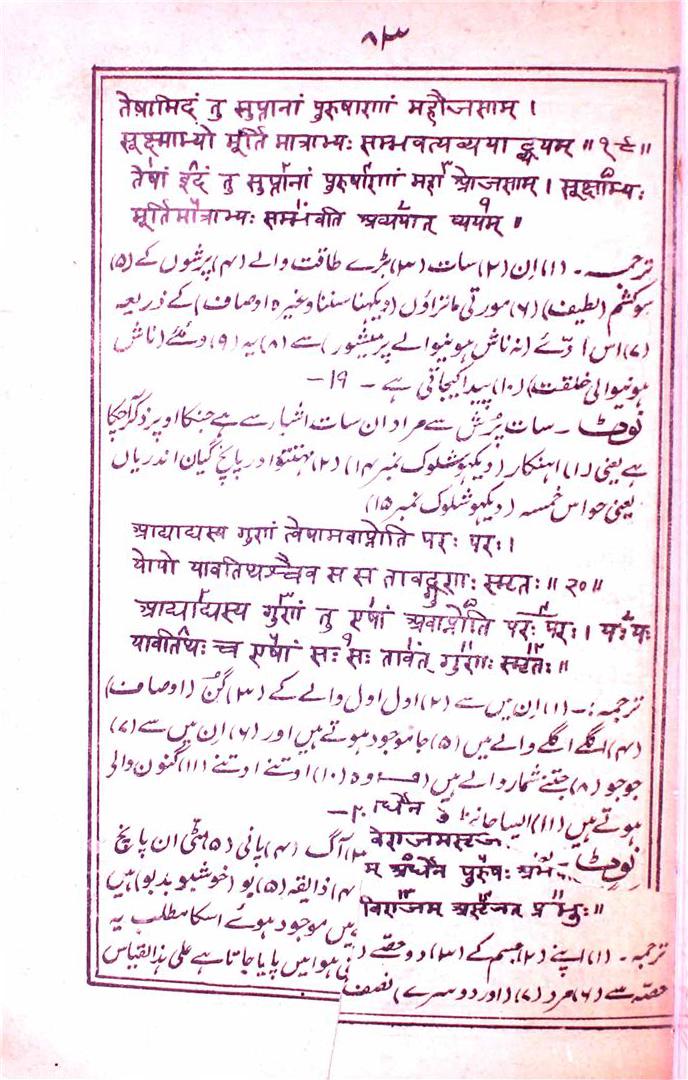 ۸۳
तेषामिदं तु सुप्तानां पुरुषाणां महौजसाम् ।
सूक्ष्माभ्यो मूर्ति मात्राभ्यः सम्भवत्यव्यया द्व्ययम् ॥ १९ ॥
तेषां इदं तु सुप्तानां पुरुषाणां महा ओजसाम् । सूक्ष्माभ्यः
मूर्तिमात्राभ्यः सम्भवति अव्ययात् व्ययम् ।
ترجمہ۔ (۱) اِن (۲) سات (۳) بڑے طاقت والے (۴) پرشوں کے (۵)
سوکشم (لطیف) (۶) مورتی ماتراؤں (دیکھنا سننا وغیرہ اوصاف) کے ذریعہ
(۷) اس اوّئے (نہ ناش ہونیوالے پرمیشور) سے (۸) یہ (۹) وئے (ناش
ہونیوالی خلقت) (۱۰) پیدا کیجاتی ہے ۔ ۱۹-
نوٹ ۔ سات پُرش سے مراد ان سات اشیار سے ہے جنکا اوپر ذکر آچکا
ہے یعنی (۱) اہنکار (دیکھو شلوک نمبر ۱۴) (۲) مہتتو اور پانچ گیان اندریاں
یعنی حواس خمسہ (دیکھو شلوک نمبر ۱۵)
आद्याद्यस्य गुणं त्वेषामवाप्नोति परः परः ।
योयो यावतिथश्चैव स स तावद्गुणः स्मृतः ॥ २० ॥
आद्याद्यस्य गुणं तु एषां अवाप्नोति परः परः । यः यः
यावतिथः च एषां सः सः तावत् गुणः स्मृतः ॥
ترجمہ:۔ (۱) اِن میں سے (۲) اول اول والے کے (۳) گُن (اوصاف)
(۴) اگلے اگلے والے میں (۵) جا موجود ہوتے ہیں اور (۶) اِن میں سے (۷)
جو جو (۸) جتنے شمار والے ہیں (۹) وہ وہ (۱۰) اوتنے اوتنے (۱۱) گنون والی
ہوتے ہیں (۱۱) ایسا جانـ
نوٹ ۔
आग (۴) پانی (۵) مٹی ان پانچ
۴) ذایقہ (۵) بو (خوشبو بدبو) ہیں
میں موجود ہوئے اسکا مطلب یہ
نی ہوا میں پایا جاتا ہے علی ہذالقیاس
र्धेन
म् अर्धेन पुरुषः
विराजम् असृजत् प्रभुः ॥
ترجمہ ۔ (۱) اپنے (۲) جسم کے (۳) دو حصے
حصّہ سے (۶) مرد (۷) (اور دوسرے) نصف